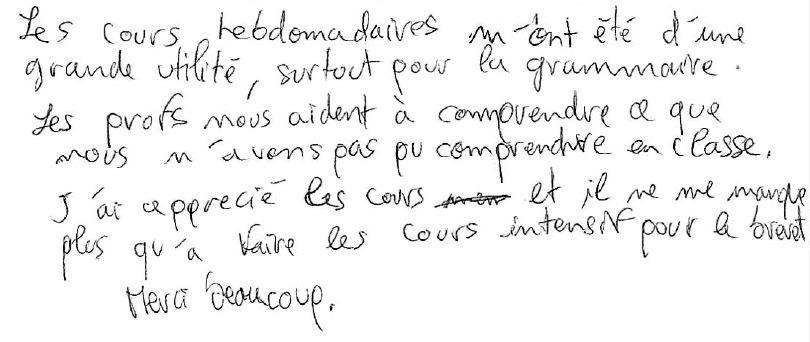 Les cours hebdomadaires m'ont été d'une
grande utilité, surtout pour la grammaire.
Les profs nous aident à comprendre ce que
nous n'avons pas pu comprendre en classe.
J'ai apprecié les cours et il ne me manque
plus qu'a faire les cours intensif pour le brevet
Merci beaucoup.